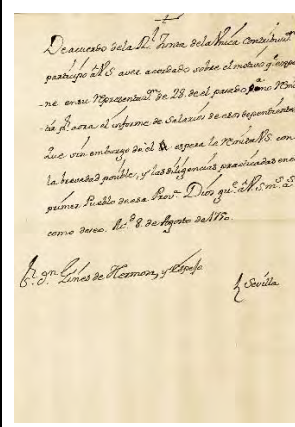 De acuerdo de la Rl. Junta de la Única Contribuon.
participo a VS. averse acordado sobre el motivo qe. expo
-ne en su representaon. de 28. de el pasado, no remi
-ta pr. aora el informe de Salarios de esos dependientes
que sin embargo de el espera la remita VS. con
la brevedad posible, y las diligencias practicadas en el
primer Pueblo de esa Prova. Dios gue. a VS. ms. as.
como deseo. Md. 8. de Agosto de 1750.
Sr. Dn. Ginés de Hermosa, y Espejo
Sevilla